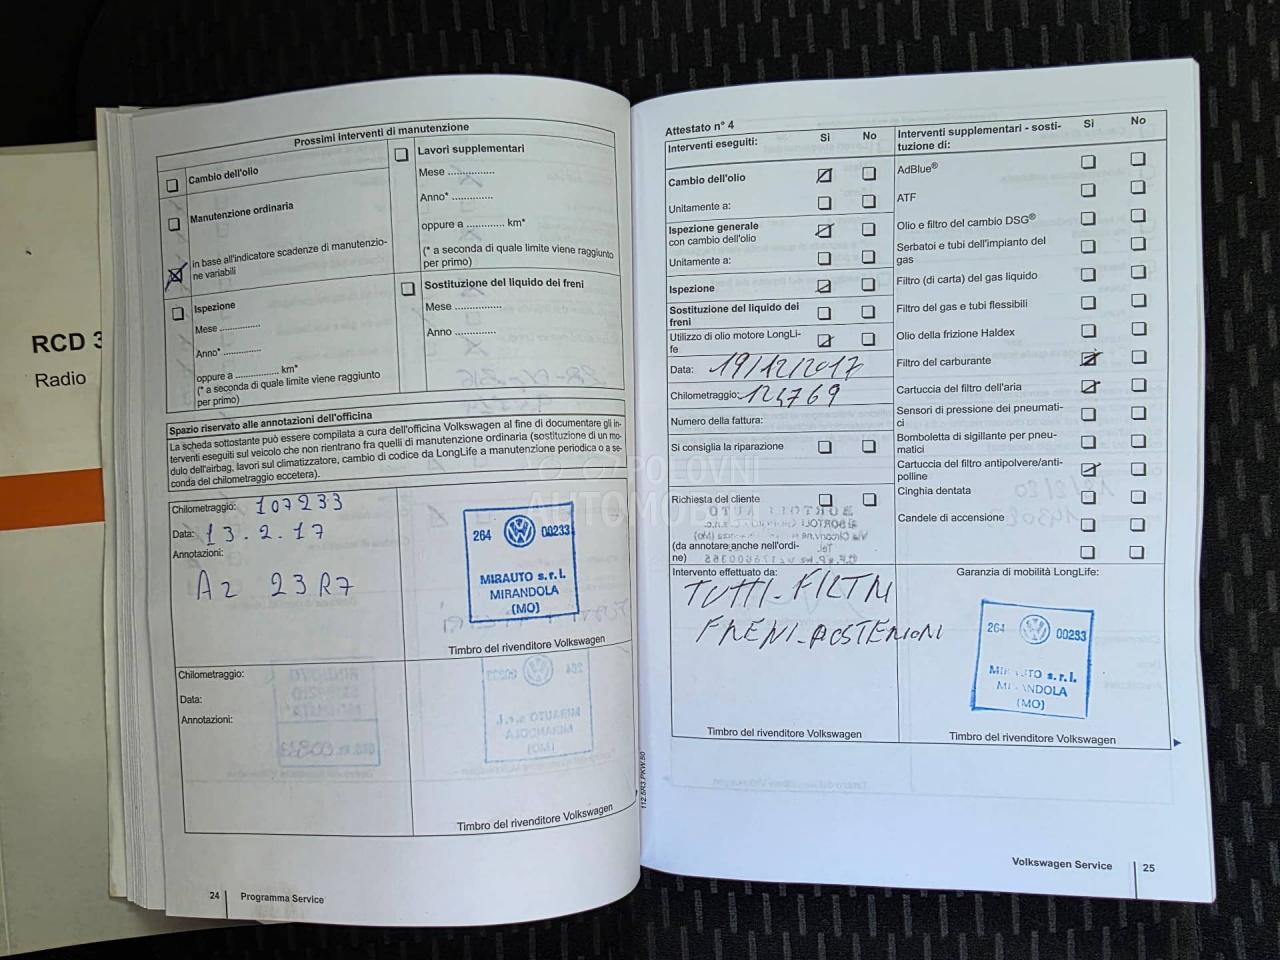 RCD 3
Radio
Prossimi interventi di manutenzione
Cambio dell'olio
Manutenzione ordinaria
in base all'indicatore scadenze di manutenzio-
ne variabili
Ispezione
Mese ...............
Anno* ..............
oppure a ................ km*
(* a seconda di quale limite viene raggiunto
per primo)
Lavori supplementari
Mese ................
Anno* ..............
oppure a ............. km*
(* a seconda di quale limite viene raggiunto
per primo)
Sostituzione del liquido dei freni
Mese ................
Anno ..............
Spazio riservato alle annotazioni dell'officina
La scheda sottostante può essere compilata a cura dell'officina Volkswagen al fine di documentare gli in-
terventi eseguiti sul veicolo che non rientrano fra quelli di manutenzione ordinaria (sostituzione di un mo-
dulo dell'airbag, lavori sul climatizzatore, cambio di codice da LongLife a manutenzione periodica o a se-
conda del chilometraggio eccetera).
Chilometraggio: 107233
Data: 13.2.17
Annotazioni:
A2 23R7
264 00233
MIRAUTO s.r.l.
MIRANDOLA
(MO)
Timbro del rivenditore Volkswagen
Chilometraggio:
Data:
Annotazioni:
Timbro del rivenditore Volkswagen
24 Programma Service
112.5R3.PKW.50
Attestato n° 4
Interventi eseguiti: Sì No
Cambio dell'olio
Unitamente a:
Ispezione generale
con cambio dell'olio
Unitamente a:
Ispezione
Sostituzione del liquido dei
freni
Utilizzo di olio motore LongLi-
fe
Data: 19/12/2017
Chilometraggio: 124769
Numero della fattura:
Si consiglia la riparazione
Richiesta del cliente
(da annotare anche nell'ordi-
ne)
Intervento effettuato da:
TUTTI-FILTRI
FRENI-POSTERIORI
Timbro del rivenditore Volkswagen
Interventi supplementari - sosti-
tuzione di: Sì No
AdBlue®
ATF
Olio e filtro del cambio DSG®
Serbatoi e tubi dell'impianto del
gas
Filtro (di carta) del gas liquido
Filtro del gas e tubi flessibili
Olio della frizione Haldex
Filtro del carburante
Cartuccia del filtro dell'aria
Sensori di pressione dei pneumati-
ci
Bomboletta di sigillante per pneu-
matici
Cartuccia del filtro antipolvere/anti-
polline
Cinghia dentata
Candele di accensione
Garanzia di mobilità LongLife:
264 00233
MIRAUTO s.r.l.
MIRANDOLA
(MO)
Timbro del rivenditore Volkswagen
Volkswagen Service 25
POLOVNI
AUTOMOBILI